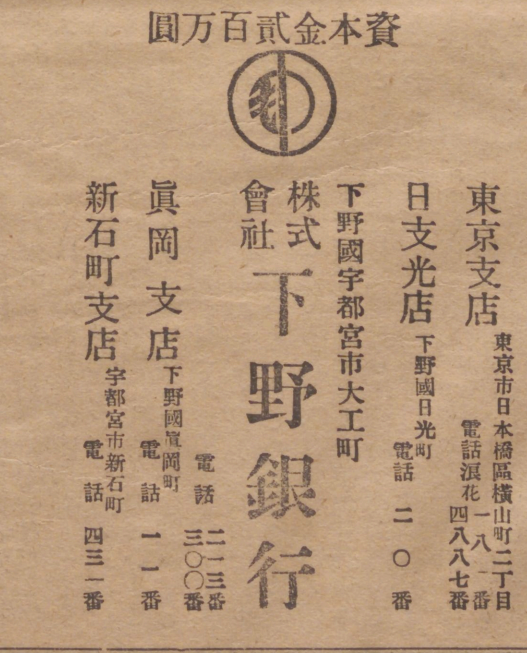 資本金貳百万圓
東京支店
東京市日本橋區横山町二丁目
電話浪花 一八一番
四八八七番
日支光店
下野國日光町
電話 二〇番
下野國宇都宮市大工町
株式會社
下野銀行
電話 二一三番
三〇〇番
眞岡支店
下野國眞岡町
電話 一一番
新石町支店
宇都宮市新石町
電話 四三一番